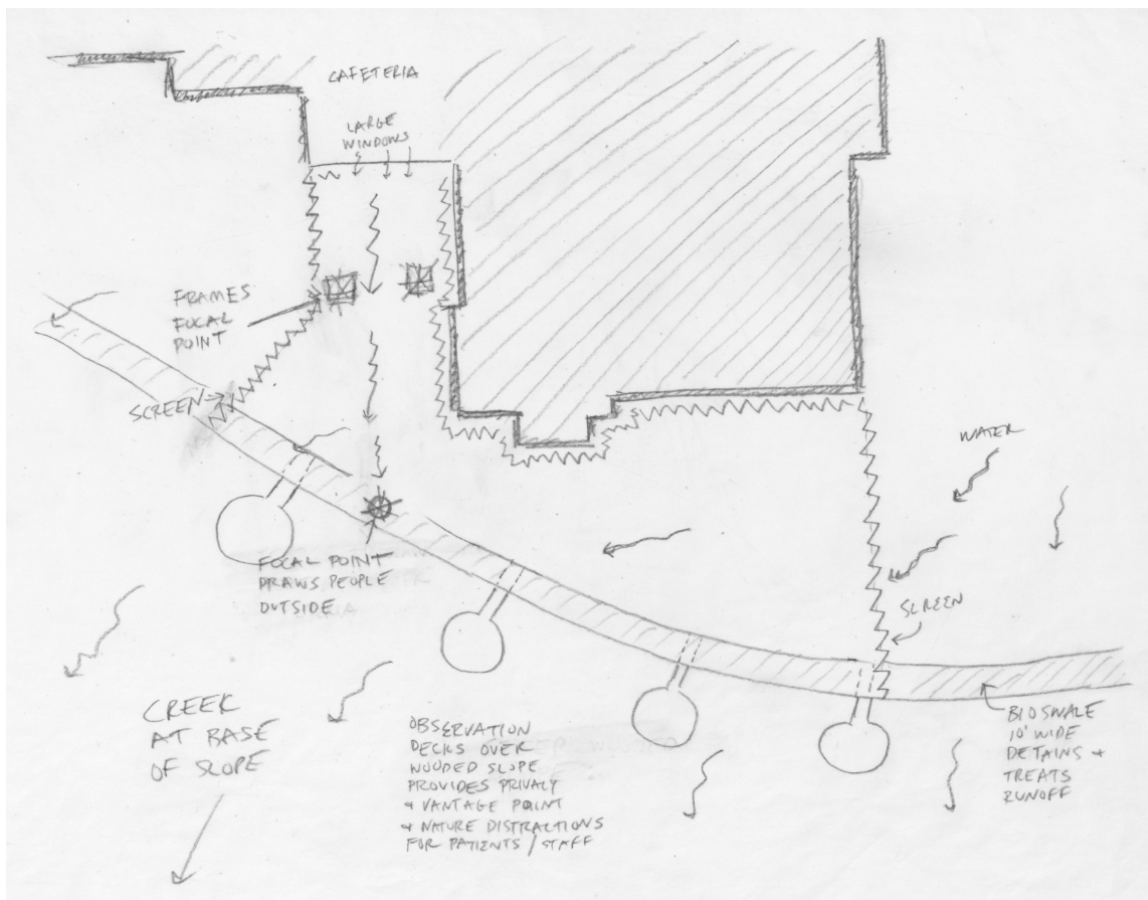 CAFETERIA
LARGE
WINDOWS
FRAMES
FOCAL
POINT
SCREEN
WATER
FOCAL POINT
DRAWS PEOPLE
OUTSIDE
SCREEN
CREEK
AT BASE
OF SLOPE
OBSERVATION
DECKS OVER
WOODED SLOPE
PROVIDES PRIVACY
+ VANTAGE POINT
+ NATURE DISTRACTIONS
FOR PATIENTS / STAFF
BIOSWALE
10' WIDE
DETAINS +
TREATS
RUNOFF